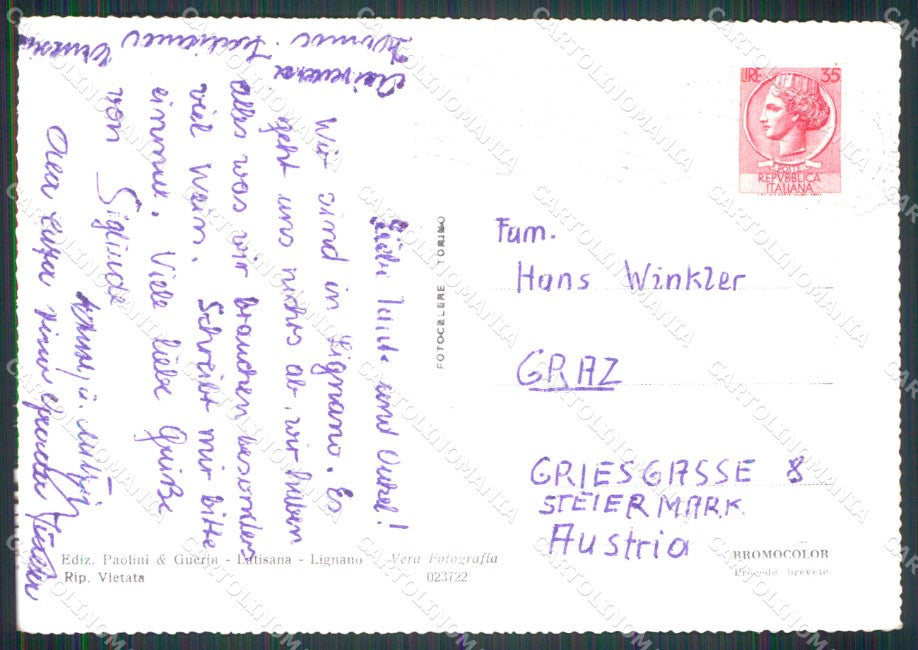 Liebe Tante und Onkel!
Wir sind in Lignano. Es
geht uns nichts ab, wir haben
alles was wir brauchen besonders
viel Wein. Schreibt mir bitte
einmal. Viele liebe Grüße
von Siglinde
LIRE 35
POSTE
REPVBBLICA
ITALIANA
Fam.
Hans Winkler
GRAZ
GRIESGASSE 8
STEIERMARK
Austria
FOTOCELERE TORINO
Ediz. Paolini & Guerin - Latisana - Lignano
Rip. Vietata
Vera Fotografia
023722
BROMOCOLOR
Procédé breveté
CARTOLINOMANIA